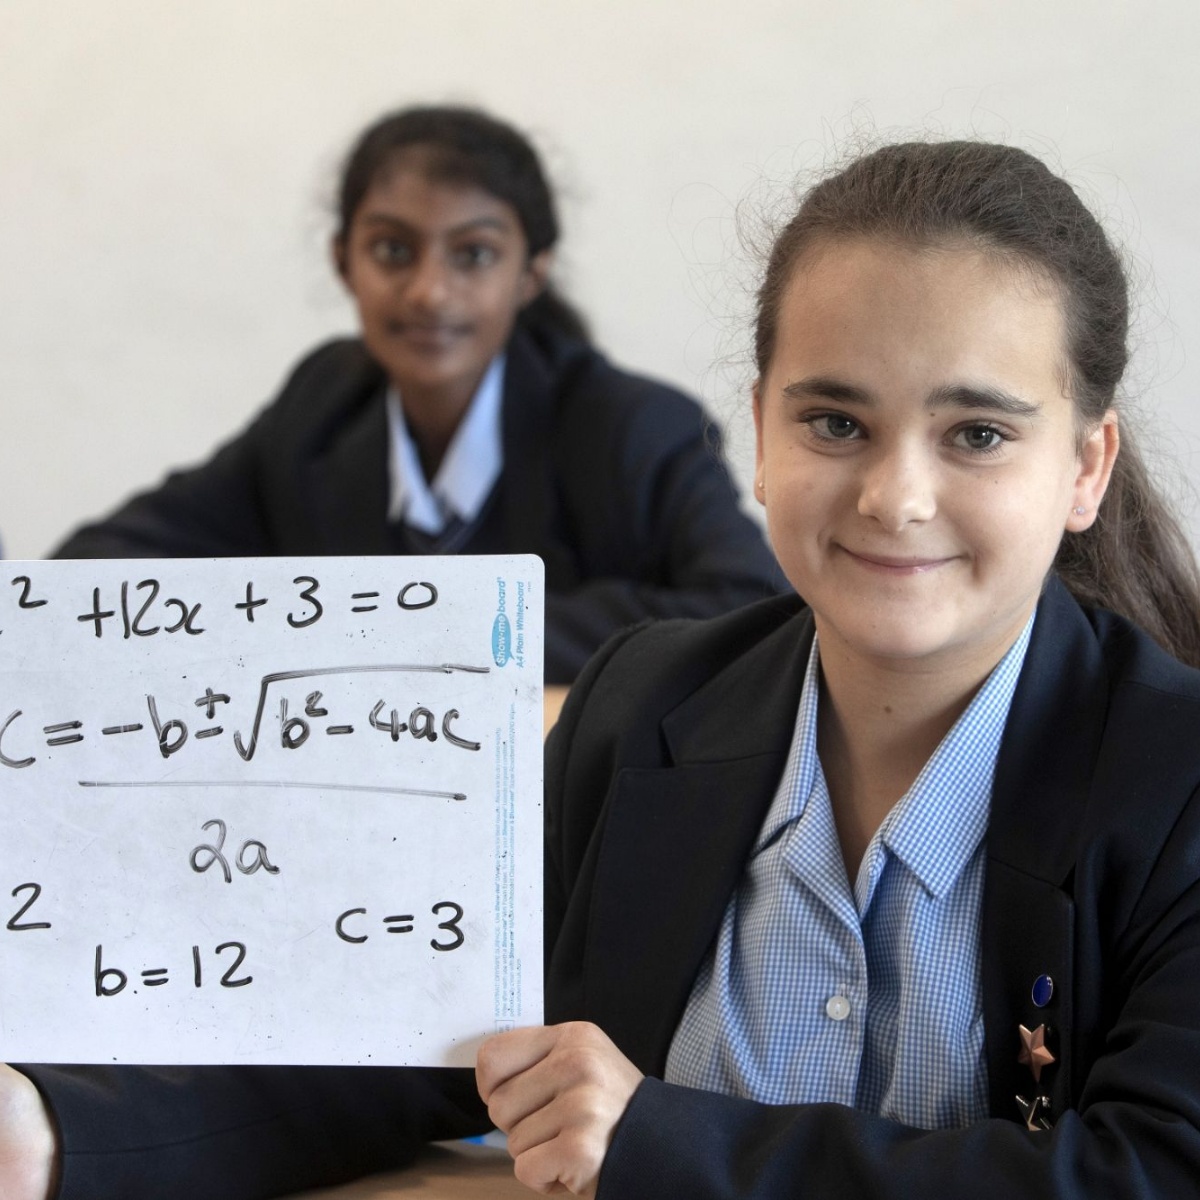 ² +12x + 3 = 0
= -b ± √b² - 4ac
2a
2
c = 3
b = 12
Show-me board®
A4 Plain Whiteboard